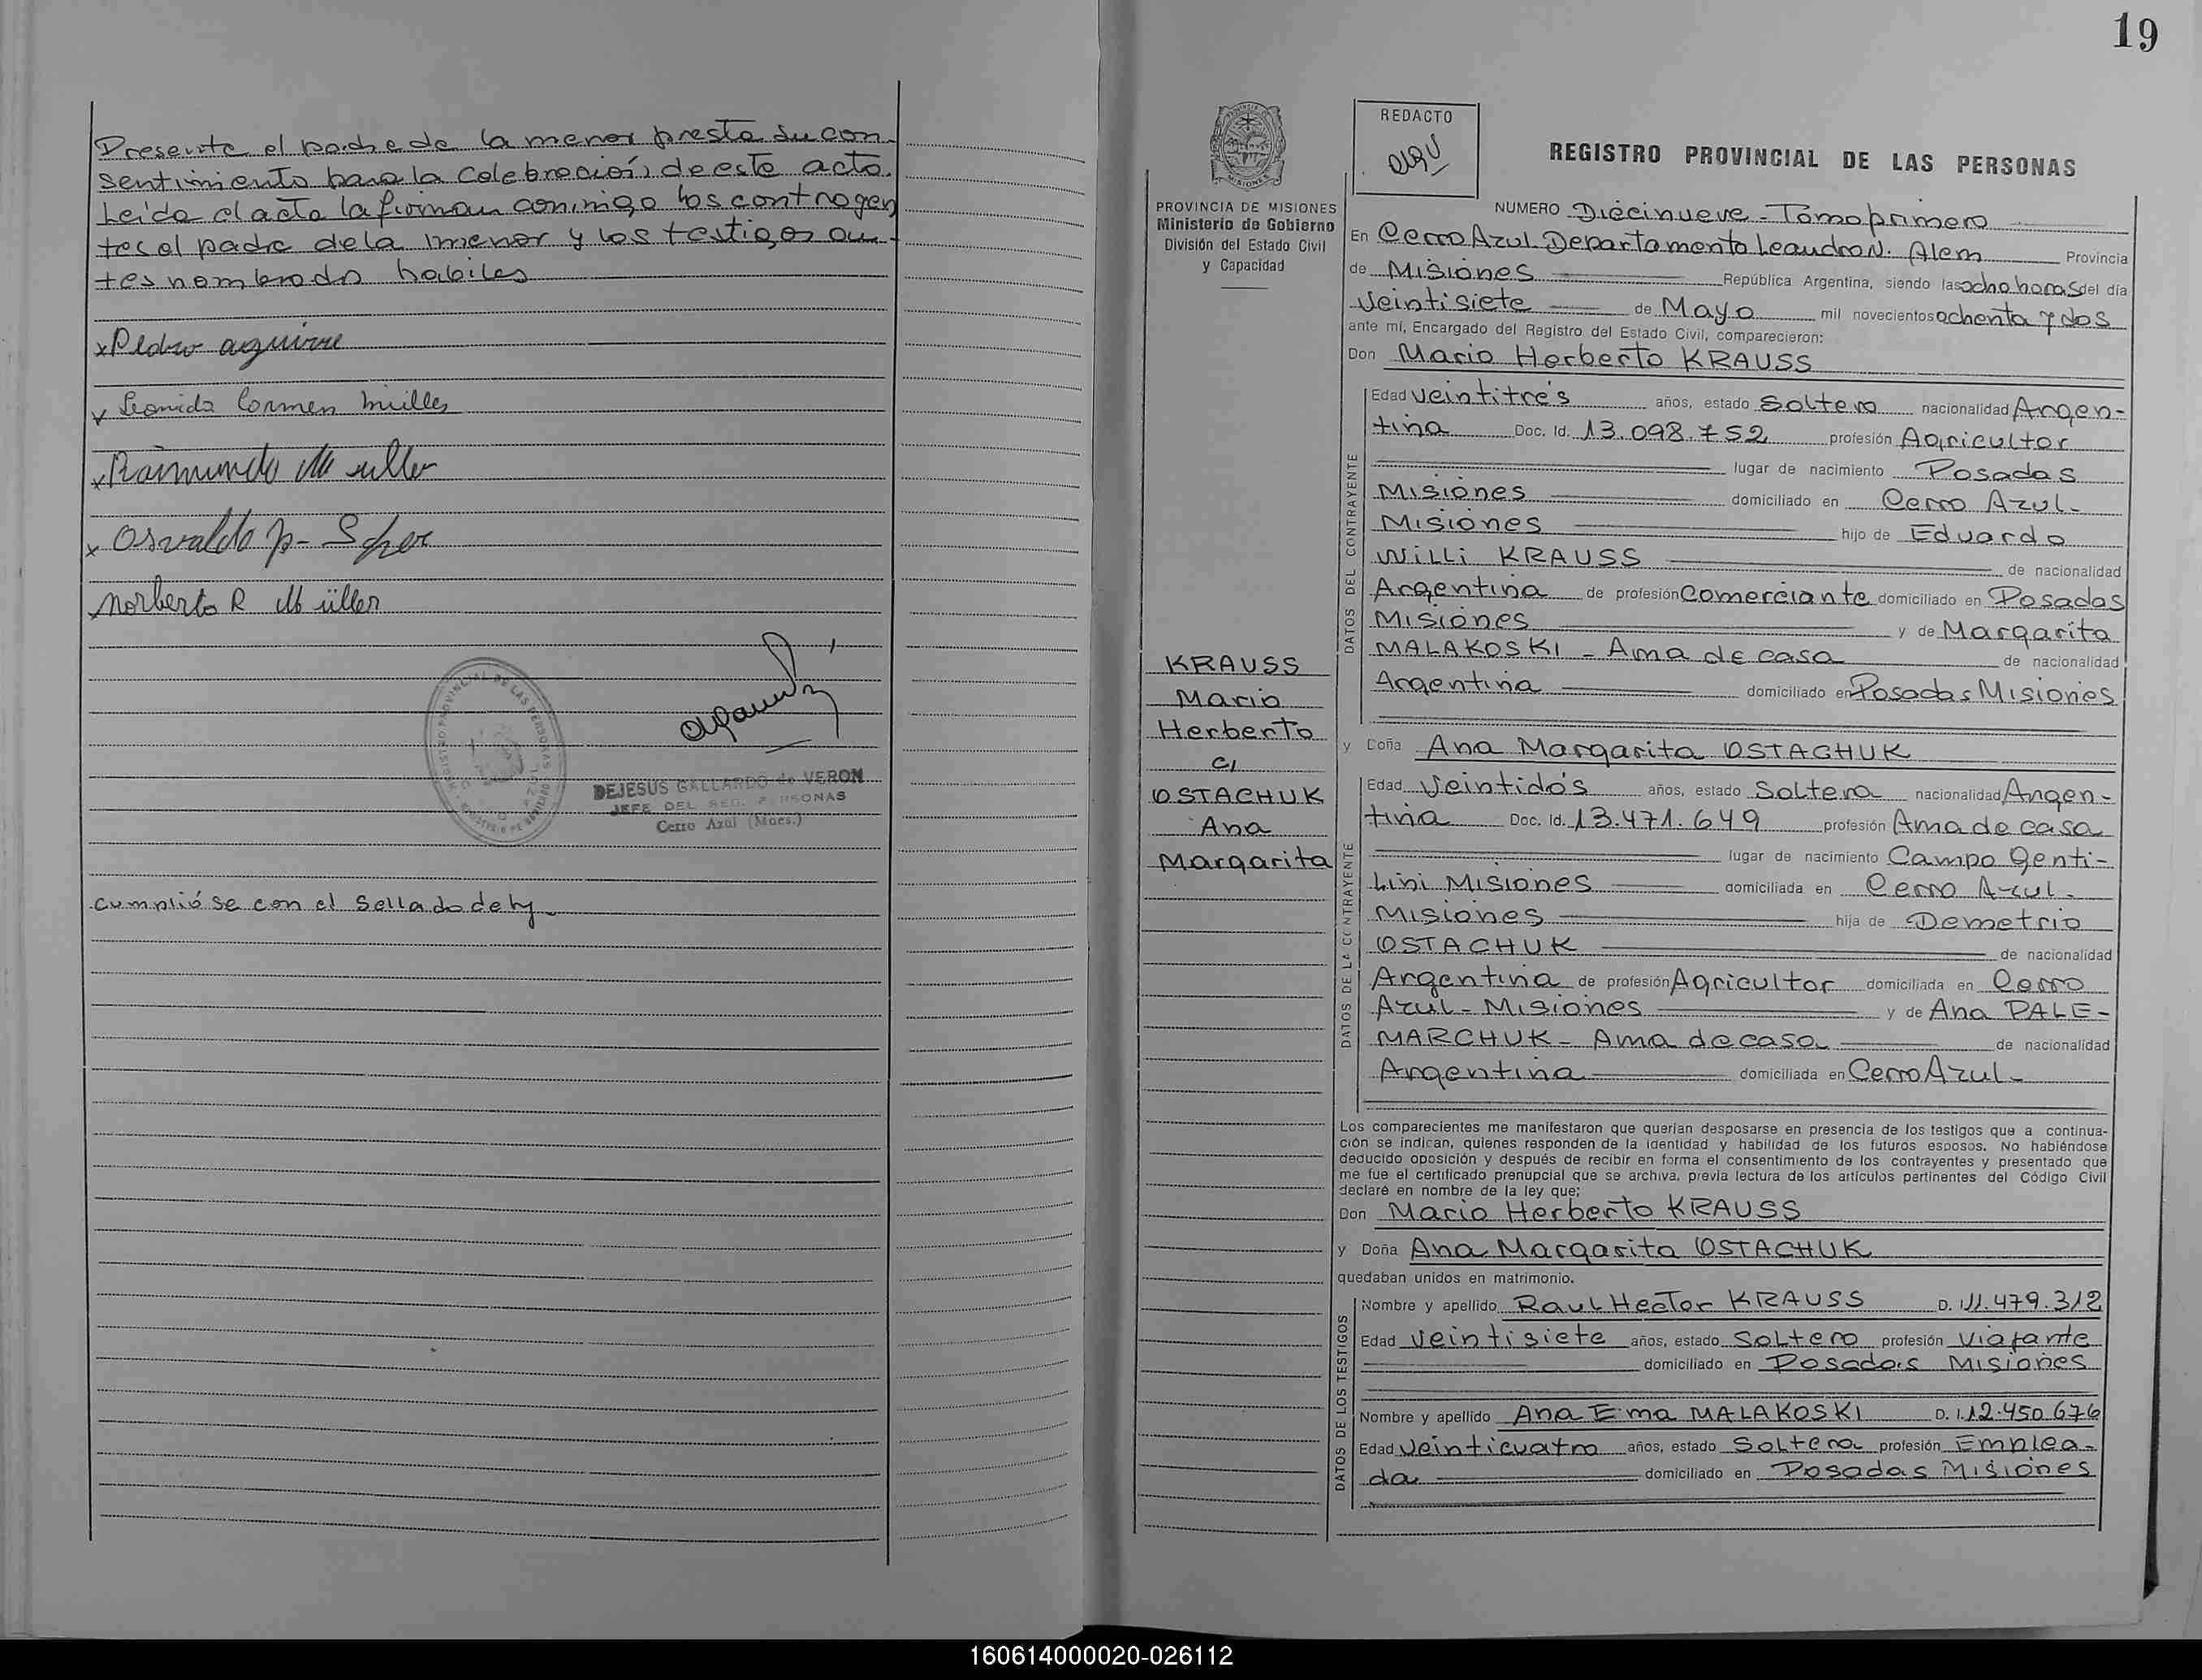 Presente el padre de la menor presta su con-
sentimiento para la celebración de este acto.
Leída el acta la firman conmigo los contrayen
tes el padre de la menor y los testigos an-
tes nombrado habiles
x Pedro aguirre
x Leonida Carmen Müller
x Raimundo Müller
x Osvaldo p-
Norberto R Müller
REGISTRO PROVINCIAL DE LAS PERSONAS
DEJESUS GALLARDO de VERON
JEFE DEL REG. PERSONAS
Cerro Azul (Mnes.)
cumplióse con el sellado de ley
19
PROVINCIA DE MISIONES
Ministerio de Gobierno
División del Estado Civil
y Capacidad
KRAUSS
Mario
Herberto
c/
OSTACHUK
Ana
Margarita
REDACTO
REGISTRO PROVINCIAL DE LAS PERSONAS
NUMERO Diécinueve - Tomo primero
En Cerro Azul Departamento Leandro N. Alem Provincia
de Misiones República Argentina, siendo las ocho horas del día
Veintisiete de Mayo mil novecientos ochenta y dos
ante mí, Encargado del Registro del Estado Civil, comparecieron:
Don Mario Herberto KRAUSS
DATOS DEL CONTRAYENTE
Edad veintitrés años, estado Soltero nacionalidad Argen-
tina Doc. Id. 13.098.752 profesión Agricultor
lugar de nacimiento Posadas
Misiones domiciliado en Cerro Azul-
Misiones hijo de Eduardo
Willi KRAUSS de nacionalidad
Argentina de profesión Comerciante domiciliado en Posadas
Misiones y de Margarita
MALAKOSKI - Ama de casa de nacionalidad
Argentina domiciliado en Posadas Misiones
y Doña Ana Margarita OSTACHUK
DATOS DE LA CONTRAYENTE
Edad Veintidós años, estado Soltera nacionalidad Argen-
tina Doc. Id. 13.471.649 profesión Ama de casa
lugar de nacimiento Campo Genti-
lini Misiones domiciliada en Cerro Azul-
Misiones hija de Demetrio
OSTACHUK de nacionalidad
Argentina de profesión Agricultor domiciliada en Cerro
Azul - Misiones y de Ana PALE-
MARCHUK - Ama de casa de nacionalidad
Argentina domiciliada en Cerro Azul-
Los comparecientes me manifestaron que querían desposarse en presencia de los testigos que a continua-
ción se indican, quienes responden de la identidad y habilidad de los futuros esposos. No habiéndose
deducido oposición y después de recibir en forma el consentimiento de los contrayentes y presentado que
me fue el certificado prenupcial que se archiva, previa lectura de los artículos pertinentes del Código Civil
declaré en nombre de la ley que;
Don Mario Herberto KRAUSS
y Doña Ana Margarita OSTACHUK
quedaban unidos en matrimonio.
DATOS DE LOS TESTIGOS
Nombre y apellido Raul Hector KRAUSS D. I. 11.479.312
Edad veintisiete años, estado Soltero profesión Viajante
domiciliado en Posadas Misiones
Nombre y apellido Ana Ema MALAKOSKI D. I. 12.450.676
Edad Veinticuatro años, estado Soltera profesión Emplea-
da domiciliado en Posadas Misiones
160614000020-026112